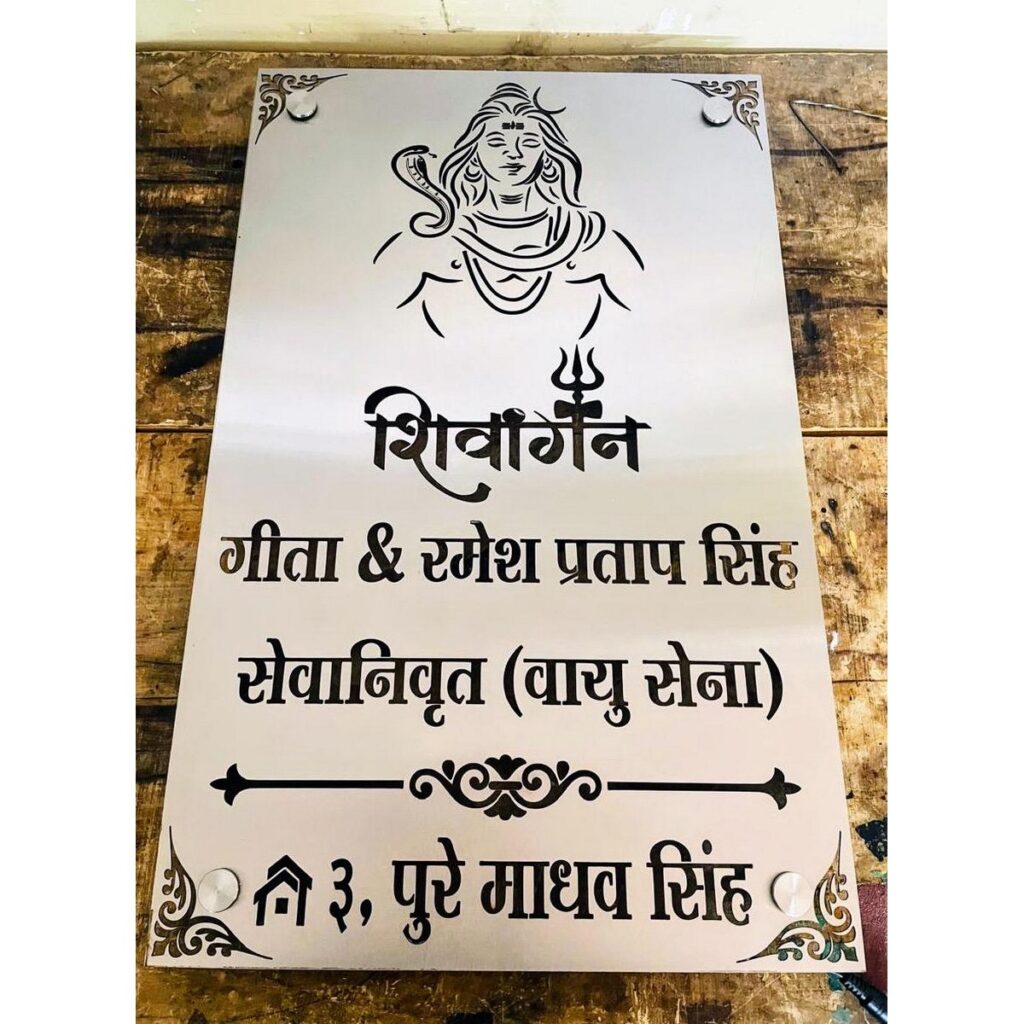 शिवांगन
गीता & रमेश प्रताप सिंह
सेवानिवृत (वायु सेना)
३, पुरे माधव सिंह